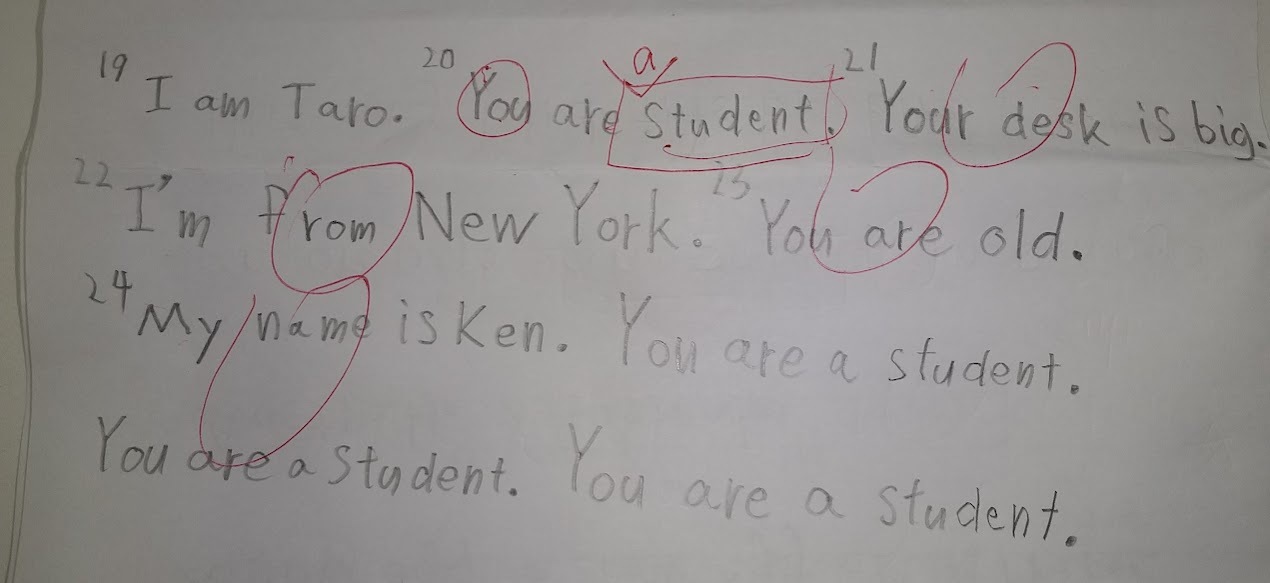 19 I am Taro. 20 You are student. 21 Your desk is big.
a
22 I'm from New York. 23 You are old.
24 My name is Ken. You are a student.
You are a student. You are a student.